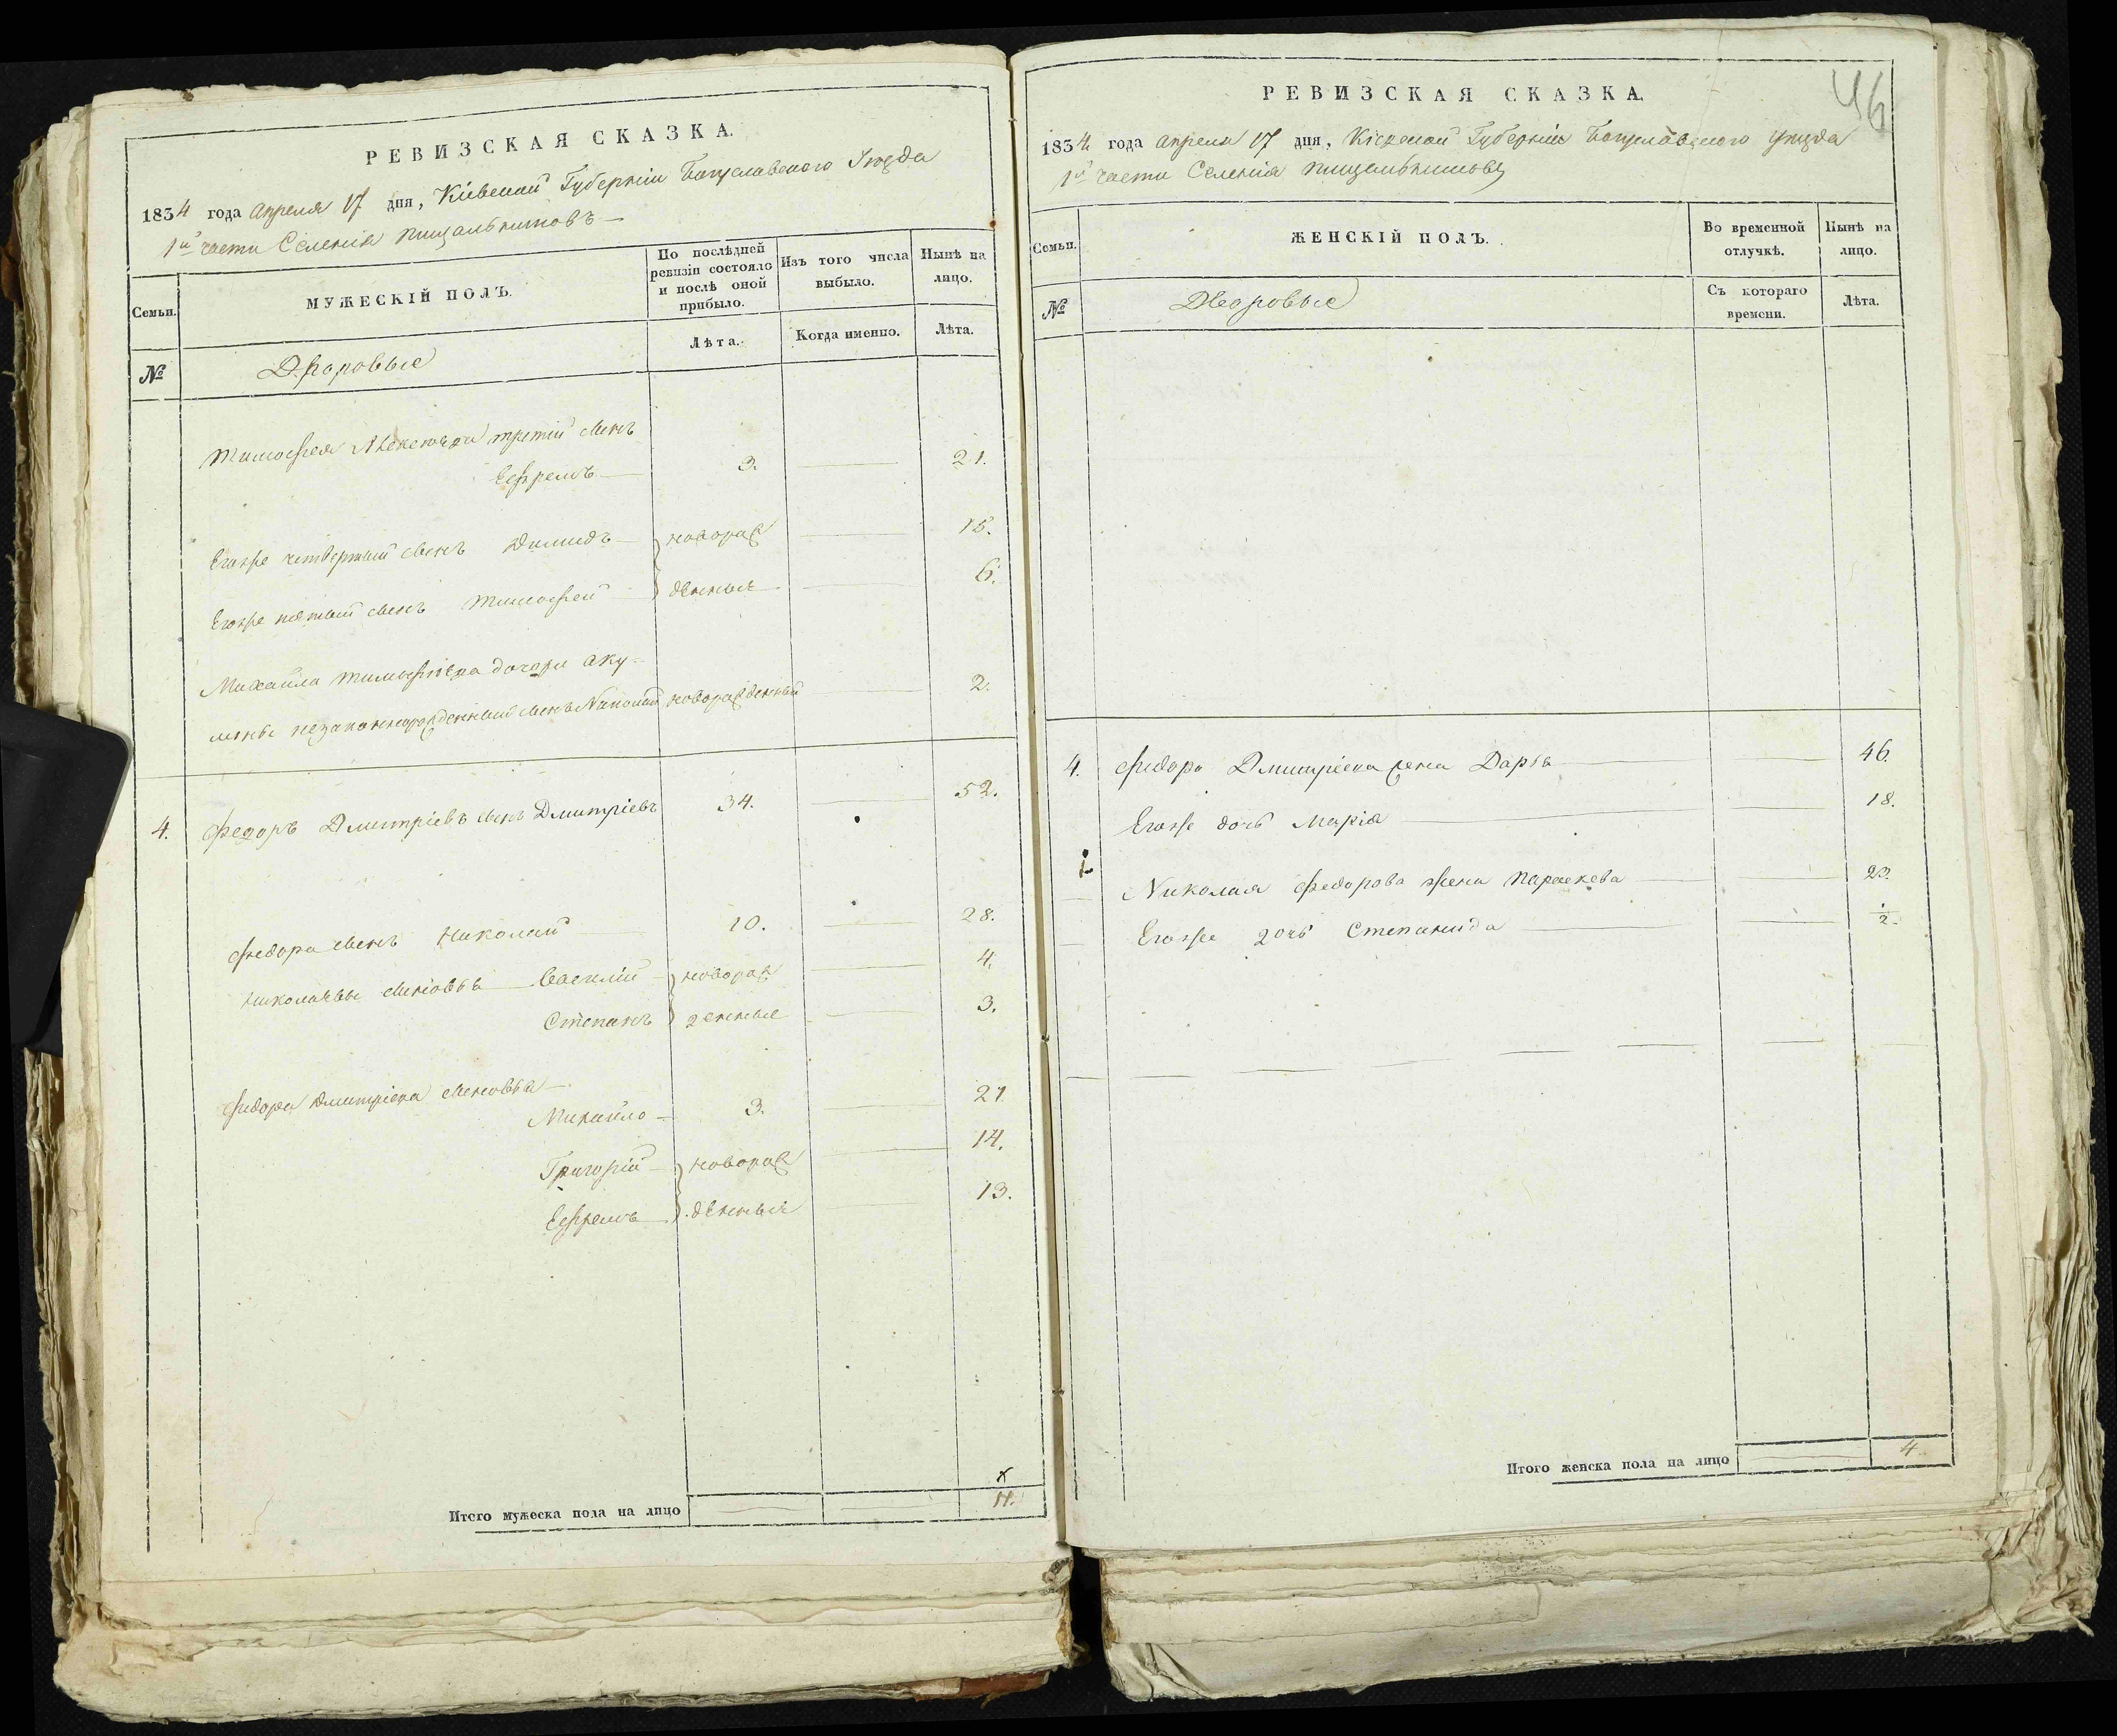 РЕВИЗСКАЯ СКАЗКА.
1834 года апреля 17 дня, Кіевской Губерніи Богуславского Уезда
1й части Селенія пищальниковъ
Семьи.
МУЖЕСКІЙ ПОЛЪ.
По послѣдней ревизіи состояло и послѣ оной прибыло.
Изъ того числа выбыло.
Нынѣ на лицо.
№
Дворовые
Лѣта.
Когда именно.
Лѣта.
Тимофея третій сынъ
Ефремъ 3. 21.
Егоже четвертый сынъ Димидъ новорож 15.
Егоже пятый сынъ Тимофей денные 6.
Михайла Тимофѣева дочери Аку-
лины незаконнорожденный сынъ Николай новорожденный 2.
4. Федоръ Дмитріевъ сынъ Дмитріевъ 34. 52.
Федора сынъ Николай 10. 28.
Николаевы сыновья Василій новорож 4.
Степанъ денные 3.
Федора Дмитріева сыновья
Михайло 3. 21.
Григорій новорож 14.
Ефремъ денныя 13.
Итого мужеска пола на лицо 11.
46
РЕВИЗСКАЯ СКАЗКА.
1834 года апреля 17 дня, Кіевской Губерніи Богуславского уезда
1й части Селенія пищальниковъ
Семьи.
ЖЕНСКІЙ ПОЛЪ.
Во временной отлучкѣ.
Нынѣ на лицо.
№
Дворовые
Съ котораго времени.
Лѣта.
4. Федора Дмитріева жена Дарья 46.
Егоже дочь Марія 18.
Николая Федорова жена Параскева 23.
Егоже дочь Степанида 1/2.
Итого женска пола на лицо 4.